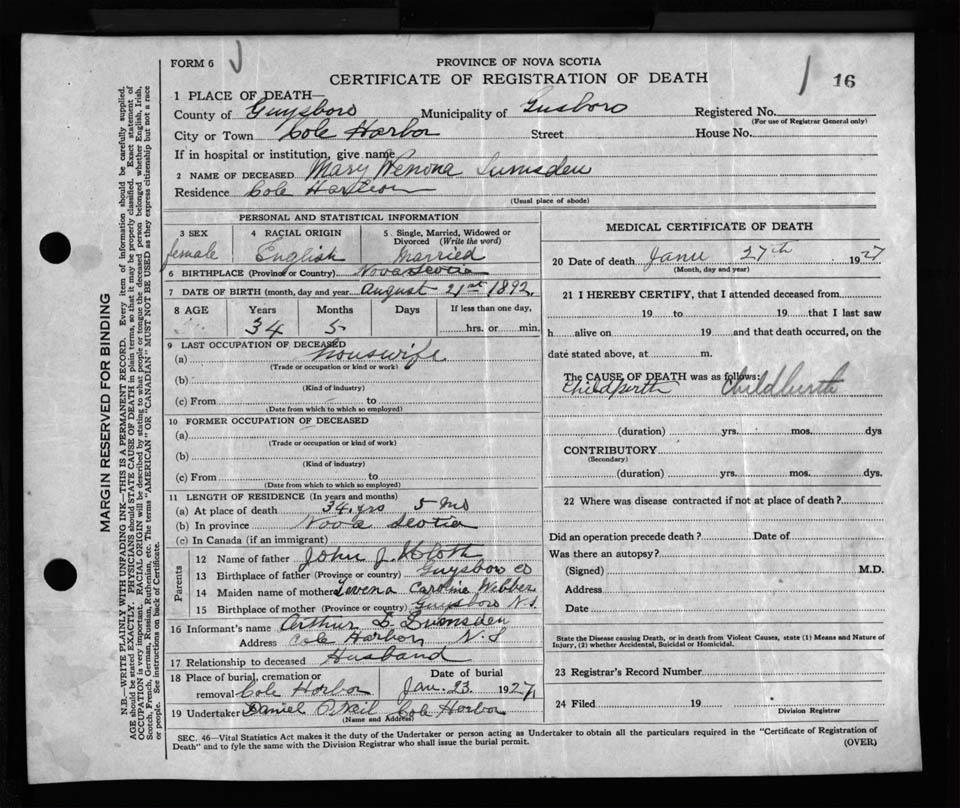 FORM 6
PROVINCE OF NOVA SCOTIA
CERTIFICATE OF REGISTRATION OF DEATH
16
1 PLACE OF DEATH—
County of Guysboro Municipality of Gusboro Registered No.
(For use of Registrar General only)
City or Town Cole Harbor Street House No.
If in hospital or institution, give name
2 NAME OF DECEASED Mary Wenona Lumsden
Residence Cole Harbour
(Usual place of abode)
PERSONAL AND STATISTICAL INFORMATION
3 SEX 4 RACIAL ORIGIN 5 Single, Married, Widowed or Divorced (Write the word)
female English Married
6 BIRTHPLACE (Province or Country) Nova Scotia
7 DATE OF BIRTH (month, day and year) August 21st 1892
8 AGE Years Months Days If less than one day,
34 5 hrs. or min.
9 LAST OCCUPATION OF DECEASED
(a) houswife
(Trade or occupation or kind or work)
(b)
(Kind of industry)
(c) From to
(Date from which to which so employed)
10 FORMER OCCUPATION OF DECEASED
(a)
(Trade or occupation or kind of work)
(b)
(Kind of industry)
(c) From to
(Date from which to which so employed)
11 LENGTH OF RESIDENCE (In years and months)
(a) At place of death 34 yrs 5 Mo
(b) In province Nova Scotia
(c) In Canada (if an immigrant)
Parents
12 Name of father John J.
13 Birthplace of father (Province or country) Guysboro Co
14 Maiden name of mother Caroline Webber
15 Birthplace of mother (Province or country) Guysboro N.S.
16 Informant's name Arthur Lumsden
Address Cole Harbor, N.S
17 Relationship to deceased Husband
18 Place of burial, cremation or Date of burial
removal Cole Harbor Jan. 23. 1927
19 Undertaker Daniel O'Neil Cole Harbor
(Name and Address)
MEDICAL CERTIFICATE OF DEATH
20 Date of death Janu 27th 1927
(Month, day and year)
21 I HEREBY CERTIFY, that I attended deceased from
19 to 19 that I last saw
h alive on 19 and that death occurred, on the
date stated above, at m.
The CAUSE OF DEATH was as follows:
Childbirth Childbirth
(duration) yrs. mos. dys
CONTRIBUTORY
(Secondary)
(duration) yrs. mos. dys.
22 Where was disease contracted if not at place of death?
Did an operation precede death? Date of
Was there an autopsy?
(Signed) M.D.
Address
Date
State the Disease causing Death, or in death from Violent Causes, state (1) Means and Nature of
Injury, (2) whether Accidental, Suicidal or Homicidal.
23 Registrar's Record Number
24 Filed 19
Division Registrar
SEC. 46—Vital Statistics Act makes it the duty of the Undertaker or person acting as Undertaker to obtain all the particulars required in the "Certificate of Registration of
Death" and to fyle the same with the Division Registrar who shall issue the burial permit.
(OVER)
MARGIN RESERVED FOR BINDING
N.B.—WRITE PLAINLY WITH UNFADING INK—THIS IS A PERMANENT RECORD. Every item of information should be carefully supplied.
AGE should be stated EXACTLY. PHYSICIANS should STATE CAUSE OF DEATH in plain terms, so that it may be properly classified. Exact statement of
OCCUPATION is very important. RACIAL ORIGIN will be described by stating to what people or tongue the deceased person belonged whether English, Irish,
Scotch, French, German, Russian, Ruthenian, etc. The terms "AMERICAN" OR "CANADIAN" MUST NOT BE USED as they express citizenship but not a race
or people. See instructions on back of Certificate.